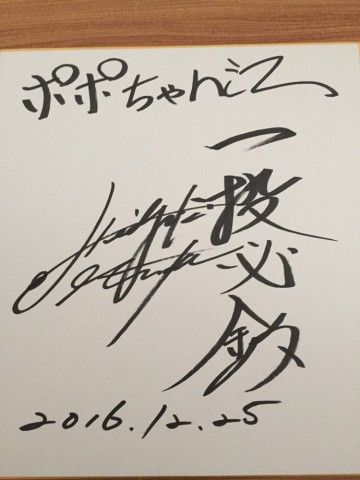 ポポちゃん江
一投必釣
2016.12.25